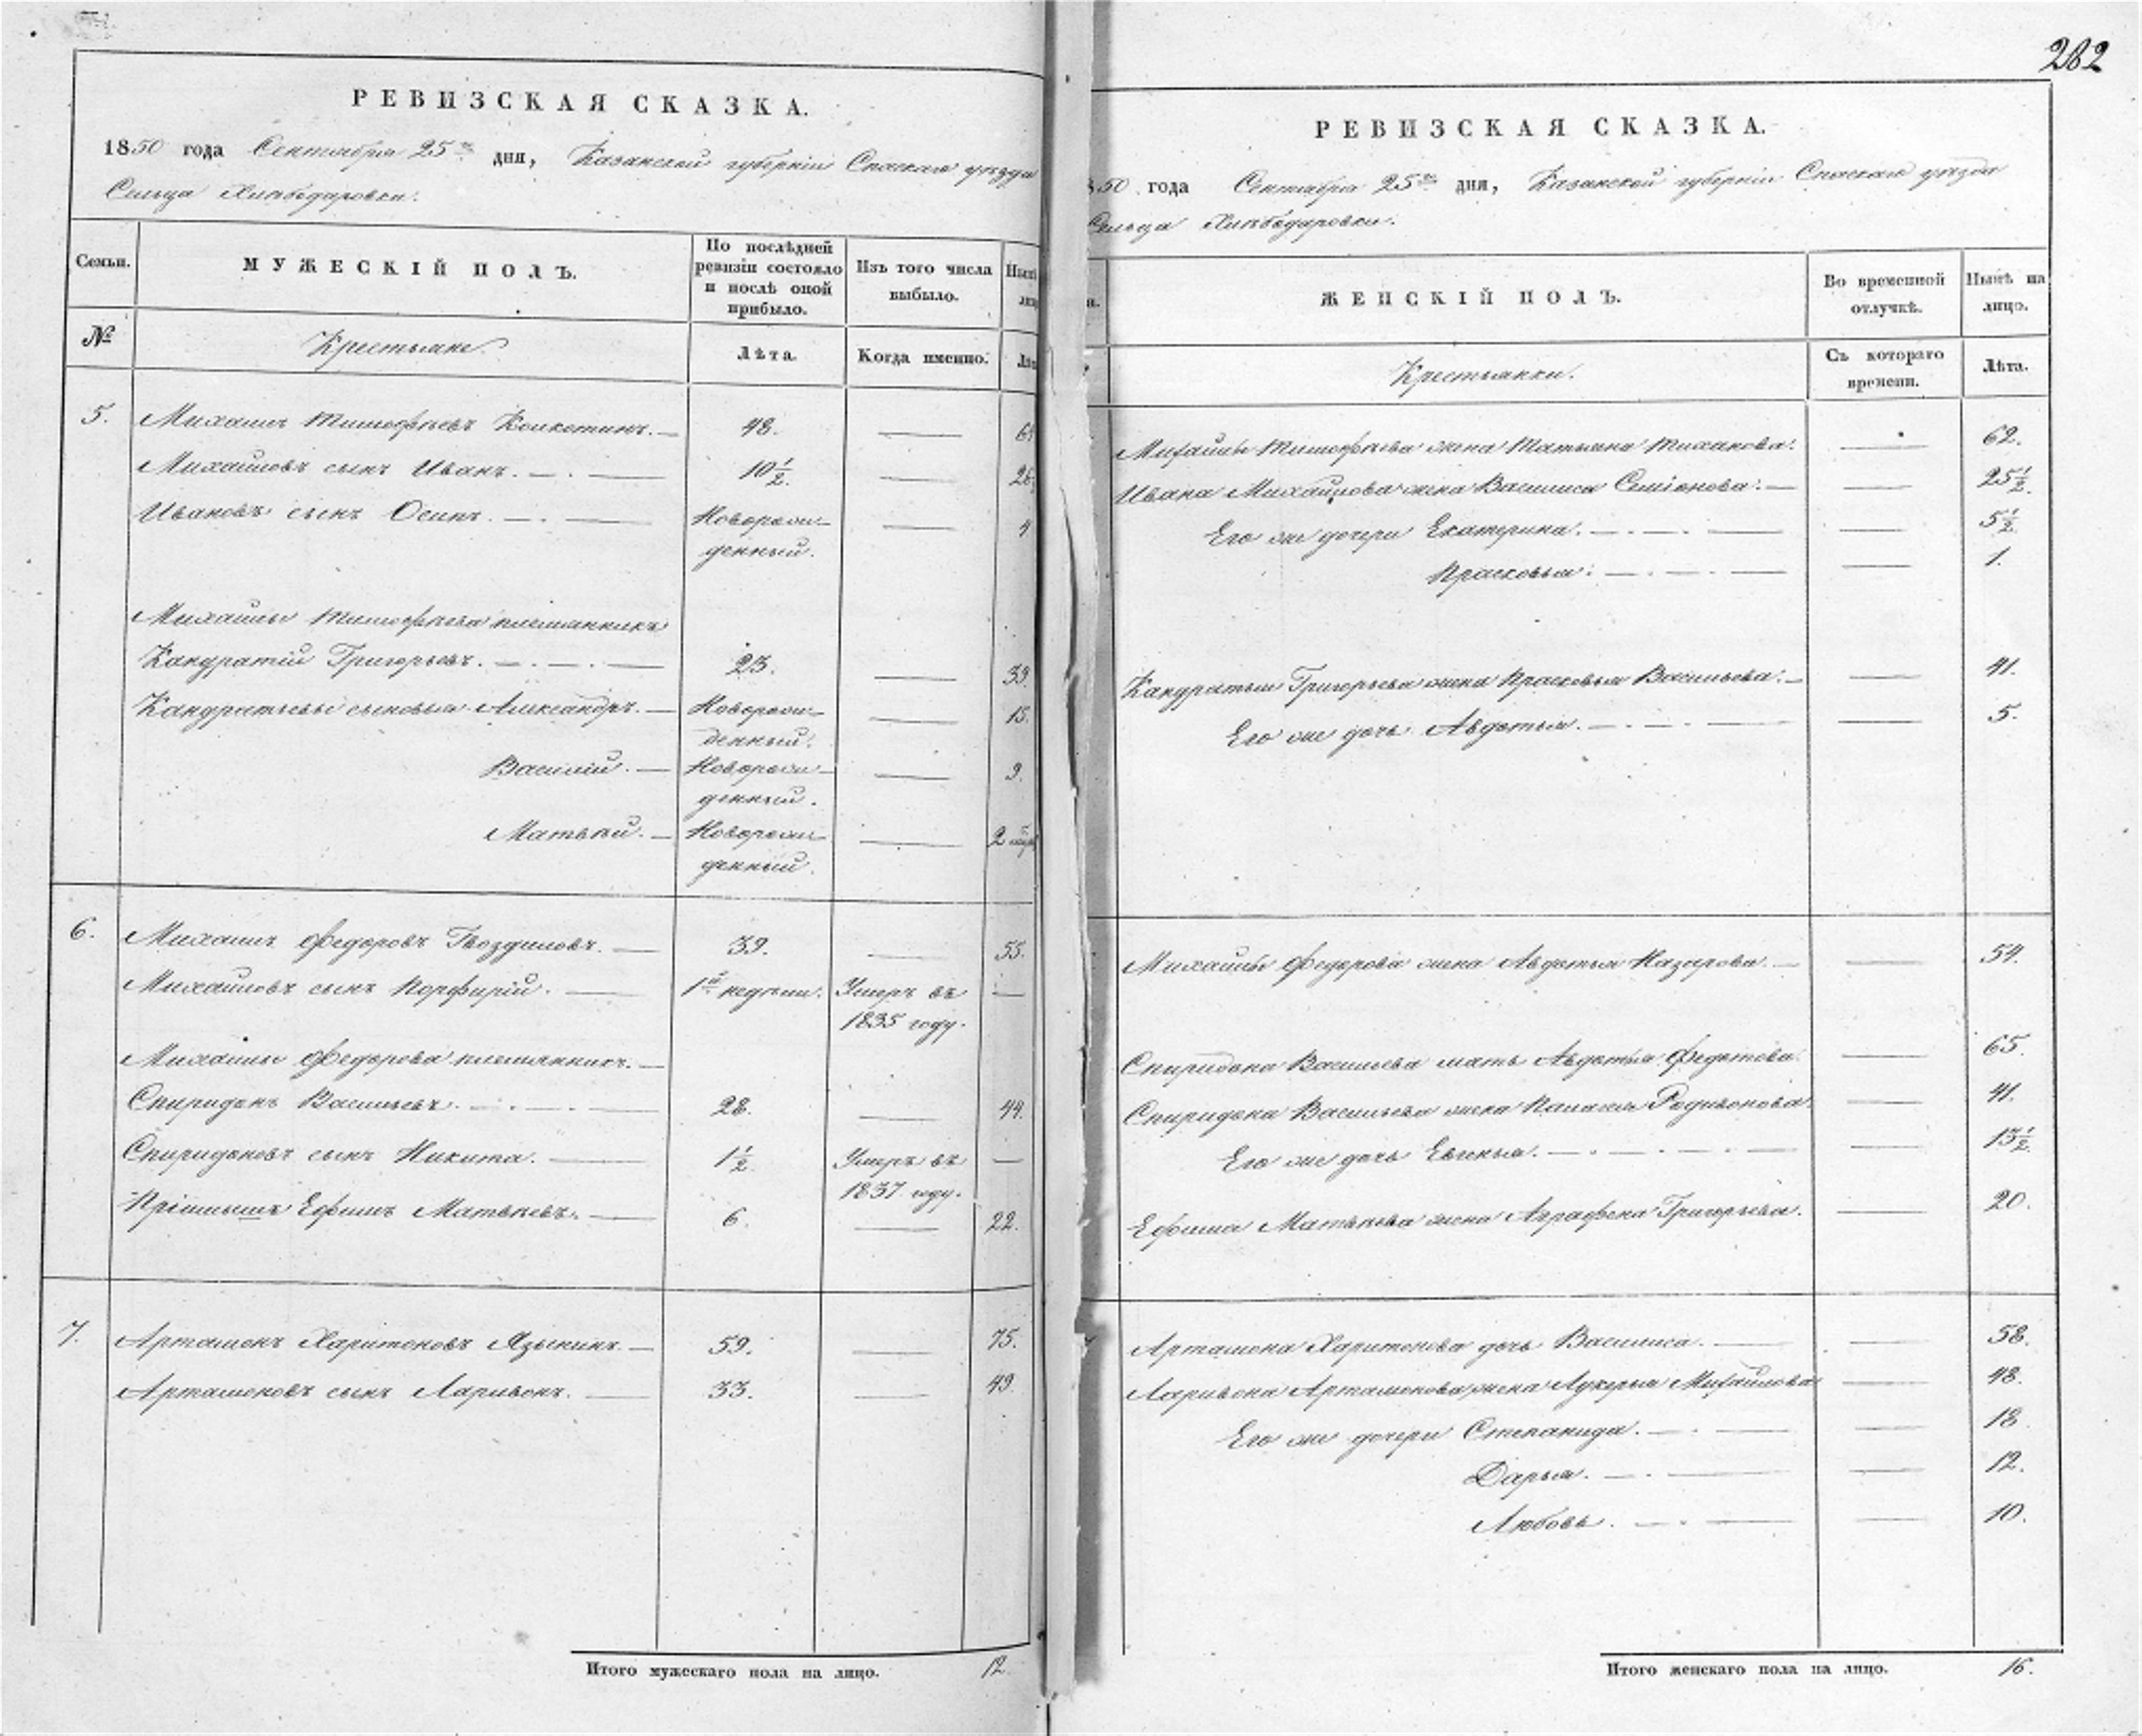 262
РЕВИЗСКАЯ СКАЗКА.
1850 года Сентября 25го дня, Казанской губерніи Спаскаго уѣзда
Сельца
Семьи.
МУЖЕСКІЙ ПОЛЪ.
По послѣдней ревизіи состояло и послѣ оной прибыло.
Изъ того числа выбыло.
№
Крестьяне.
Лѣта.
Когда именно.
5. Михаилъ Тимофѣевъ 48. —
Михаиловъ сынъ Иванъ. — 10½. — 26.
Ивановъ сынъ Осипъ. — Новорожденный. — 4
Михайлы Тимофѣева племянникъ
Кандратій Григорьевъ. — 23. — 39.
Кандратьевы сыновья Александръ. — Новорожденный. — 15.
Василій. — Новорожденный. — 9.
Матвѣй. — Новорожденный. — 2
6. Михаилъ Федоровъ Гвоздиловъ. — 39. — 55.
Михаиловъ сынъ Порфирій. — 1й недѣли. Умеръ въ 1835 году. —
Михайлы Федорова племянникъ. —
Спиридонъ Васильевъ. — 28. — 44.
Спиридоновъ сынъ Никита. — 1½. Умеръ въ 1837 году. —
Пріімышъ Ефимъ Матвѣевъ. — 6. — 22.
7. Арташонъ Харитоновъ Язынинъ. — 59. — 75.
Арташоновъ сынъ Ларивонъ. — 33. — 49.
Итого мужескаго пола на лицо. 12.
РЕВИЗСКАЯ СКАЗКА.
50 года Сентября 25го дня, Казанской губерніи Спаскаго уѣзда
Сельца
ЖЕНСКІЙ ПОЛЪ.
Во временной отлучкѣ.
Нынѣ на лицо.
Крестьянки.
Съ котораго времени.
Лѣта.
Михайлы Тимофѣева жена Татьяна — 62.
Ивана Михайлова жена Василиса Семіонова. — 25½.
Его же дочери Екатерина. — 5½.
Прасковья. — 1.
Кандратья Григорьева жена Прасковья Васильева. — 41.
Его же дочь Авдотья. — 5.
Михайлы Федорова жена Авдотья Назарова. — 54.
Спиридона Васильева мать Авдотья Федотова. — 65.
Спиридона Васильева жена Палагея Родивонова. — 41.
Его же дочь Евгенья. — 13½.
Ефима Матвѣева жена Аграфена Григорьева. — 20.
Арташона Харитонова дочь Василиса. — 58.
Ларивона Арташонова жена Лукерья Михайлова — 48.
Его же дочери Степанида. — 18
Дарья. — 12.
Любовь. — 10.
Итого женскаго пола на лицо. 16.